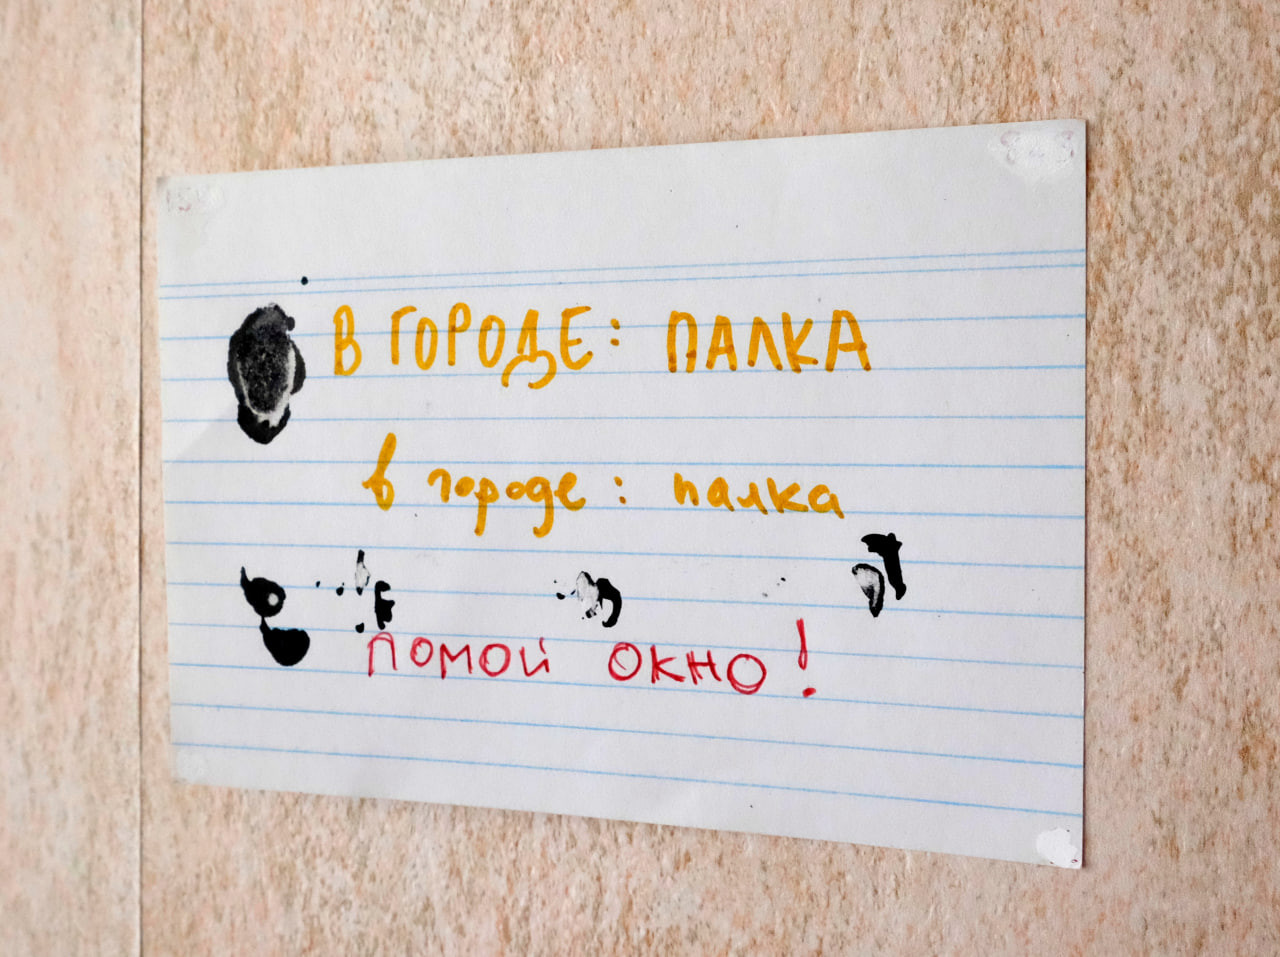 В ГОРОДЕ: ПАЛКА
в городе: палка
помой окно!